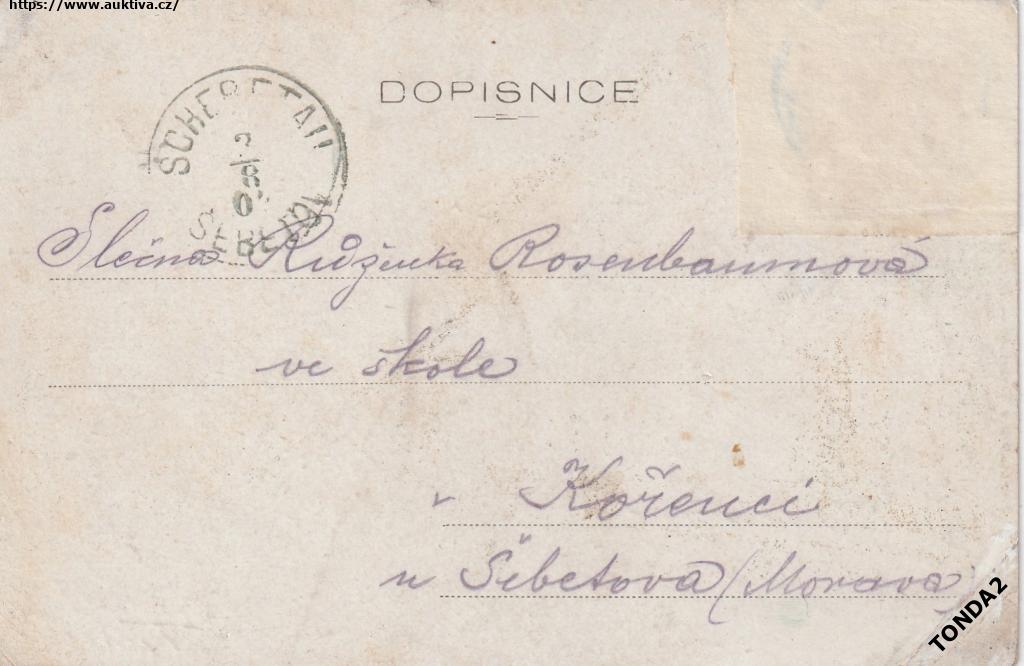 https://www.auktiva.cz/
DOPISNICE
SCHEBETAU
ŠEBETOV
Slečna Růženka Rosenbaumová
ve škole
v Kořenci
u Šebetova (Morava)
TONDA2